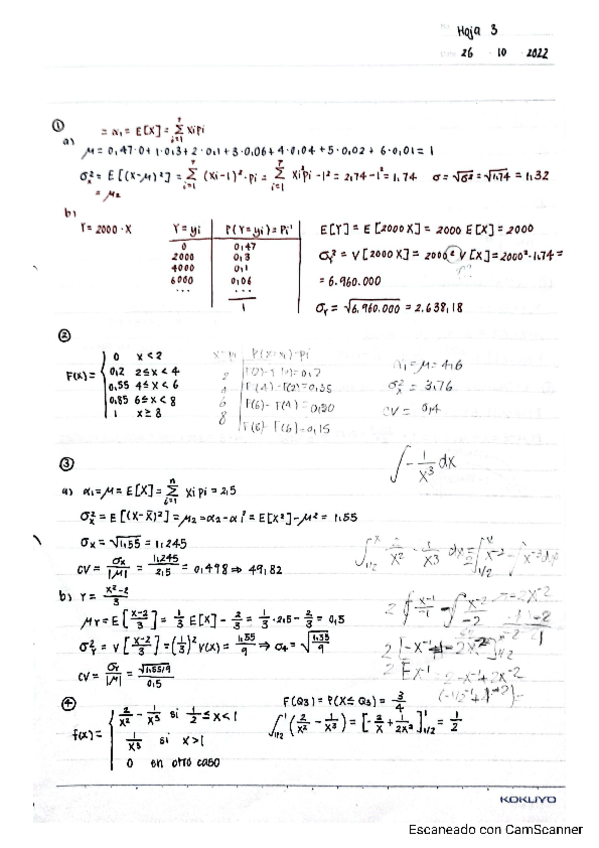 Hoja 3
26 · 10 · 2022
① = α₁ = E[X] = Σ xi pi
a)
μ = 0,47·0 + 1·0,3 + 2·0,1 + 3·0,06 + 4·0,04 + 5·0,02 + 6·0,01 = 1
σx² = E[(X-μ)²] = Σ (xi-1)²·pi = Σ xi²pi - 1² = 2,74 - 1² = 1,74 σ = √σ² = √1,74 = 1,32
= μ₂
b)
Y = 2000·X
Y = yi P(Y=yi) = Pi'
0 0,47
2000 0,3
4000 0,1
6000 0,06
... ...
1
E[Y] = E[2000X] = 2000 E[X] = 2000
σY² = V[2000X] = 2000² V[X] = 2000²·1,74 =
= 6.960.000
σY = √6.960.000 = 2.638,18
②
F(x) =
0 x < 2
0,2 2 ≤ x < 4
0,55 4 ≤ x < 6
0,85 6 ≤ x < 8
1 x ≥ 8
2
4 F(4) - F(2) = 0,35
6 F(6) - F(4) = 0,30
8 0,15
α₁ = μ = 4,6
σx² = 3,76
CV = 0,4
∫ - 1/x³ dx
③
a) α₁ = μ = E[X] = Σ xi pi = 2,5
σx² = E[(X-X̄)²] = μ₂ = α₂ - α₁² = E[X²] - μ² = 1,55
σx = √1,55 = 1,245
CV = σx/|μ| = 1,245/2,5 = 0,498 ⇒ 49,82
b) Y = x-2/3
μY = E[x-2/3] = 1/3 E[X] - 2/3 = 1/3·2,5 - 2/3 = 0,5
σY² = V[x-2/3] = (1/3)² V(X) = 1,55/9 ⇒ σY = √1,55/9
CV = σY/|μ| = √1,55/9 / 0,5
④
f(x) =
2/x² - 1/x³ si 1/2 ≤ x < 1
1/x³ si x > 1
0 en otro caso
F(Q3) = P(X ≤ Q3) = 3/4
∫₁/₂¹ (2/x² - 1/x³) = [-2/x + 1/2x²]₁/₂¹ = 1/2
KOKUYO
Escaneado con CamScanner